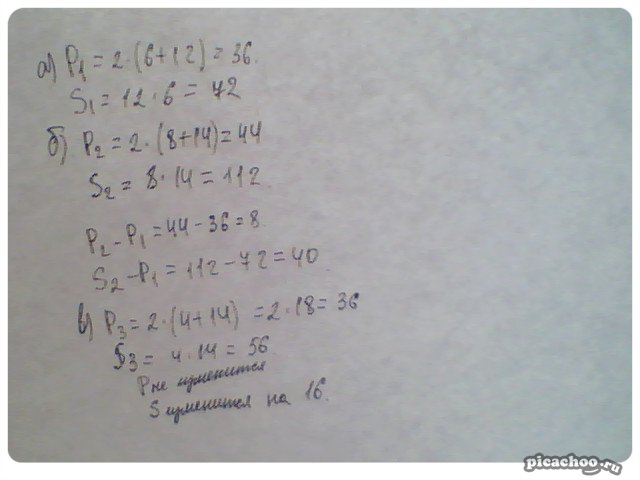 а) P₁ = 2·(6+12) = 36.
S₁ = 12·6 = 72
б) P₂ = 2·(8+14) = 44
S₂ = 8·14 = 112.
P₂ - P₁ = 44 - 36 = 8.
S₂ - P₁ = 112 - 72 = 40
в) P₃ = 2·(4+14) = 2·18 = 36
S₃ = 4·14 = 56.
P не изменится
S изменится на 16.
picachoo.ru